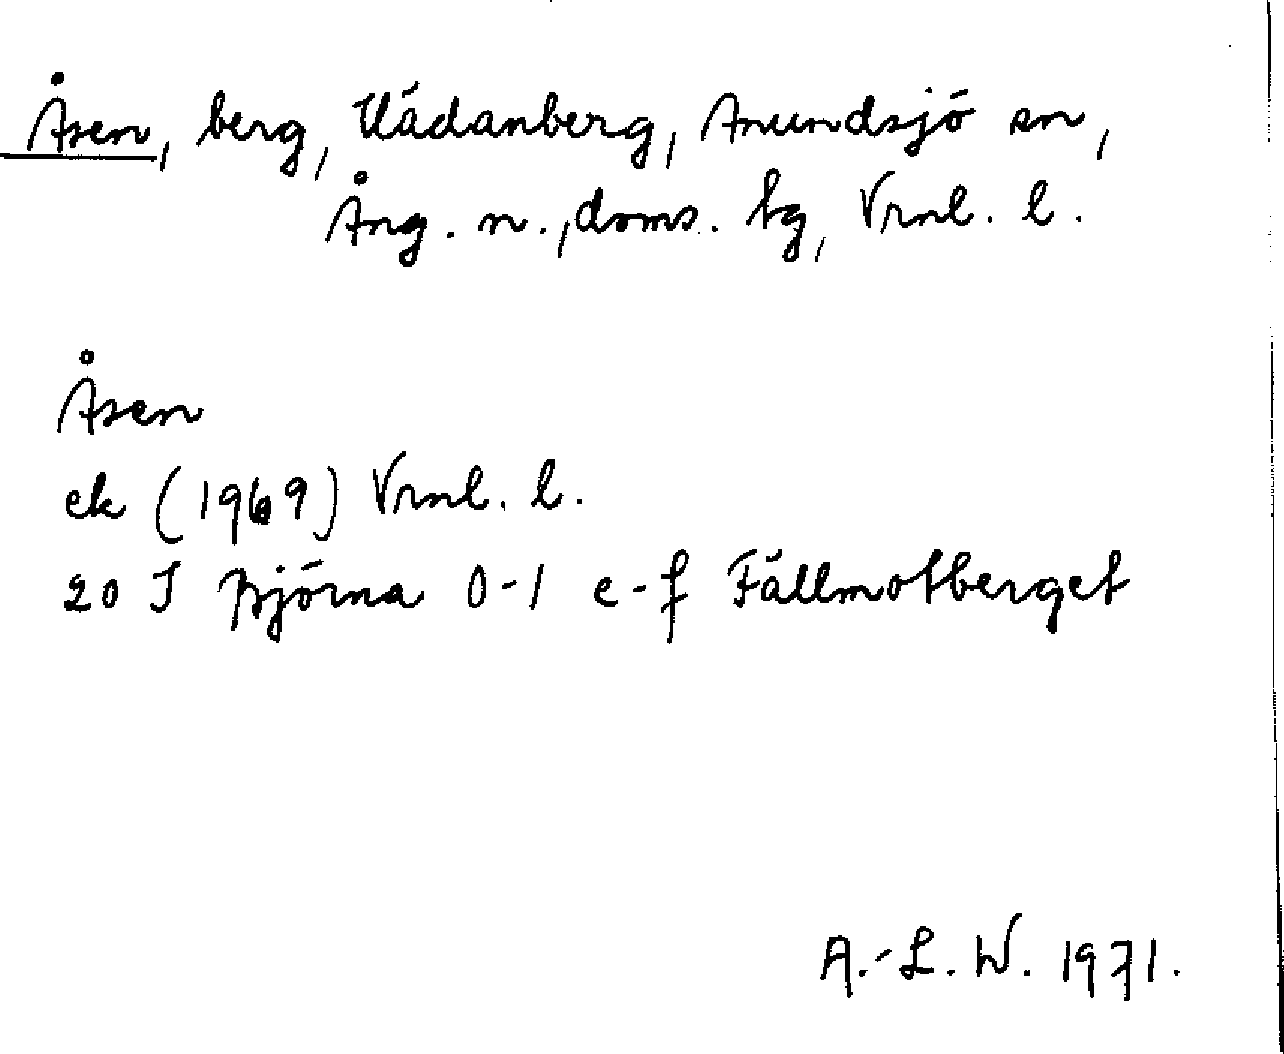 Åsen, berg, Vädanberg, Anundsjö sn,
Ång. n., doms. tg, Vrnl. l.
Åsen
ek (1969) Vrnl. l.
20 J Björna 0-1 e-f Fällmotberget
A.-L. W. 1971.